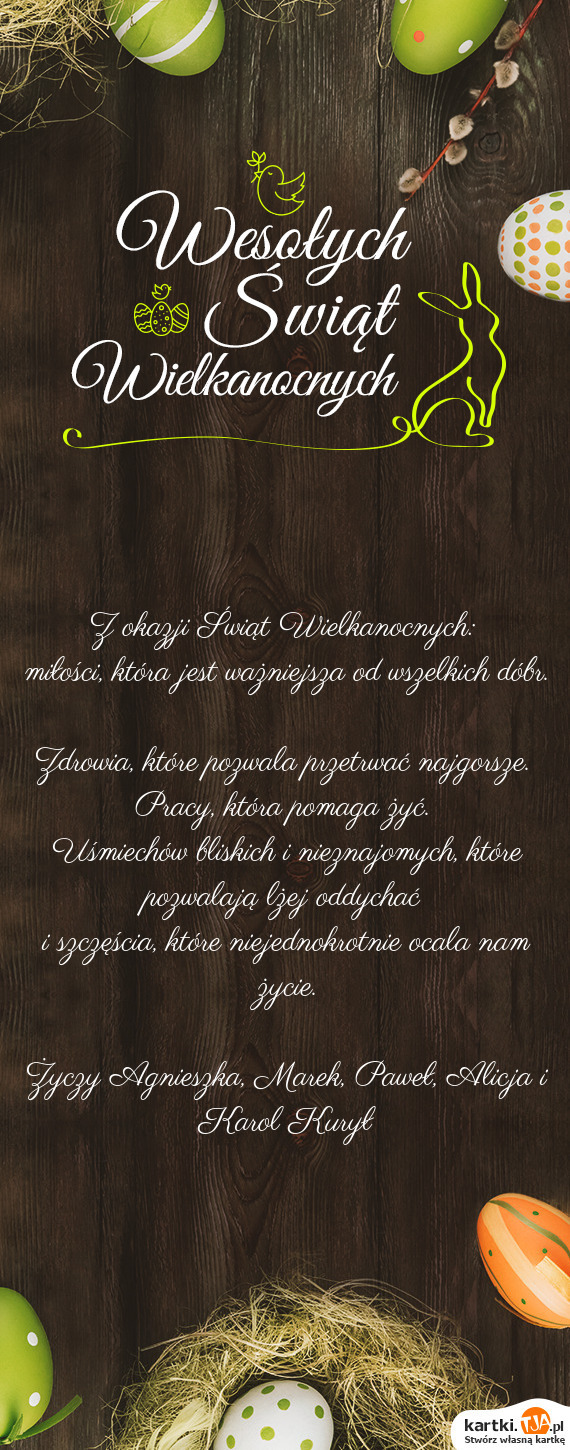 Wesołych
Świąt
Wielkanocnych
Z okazji Świąt Wielkanocnych:
miłości, która jest ważniejsza od wszelkich dóbr.
Zdrowia, które pozwala przetrwać najgorsze.
Pracy, która pomaga żyć.
Uśmiechów bliskich i nieznajomych, które
pozwalają lżej oddychać
i szczęścia, które niejednokrotnie ocala nam
życie.
Życzy Agnieszka, Marek, Paweł, Alicja i
Karol Kurył
kartki.TJA.pl
Stwórz własną kartkę